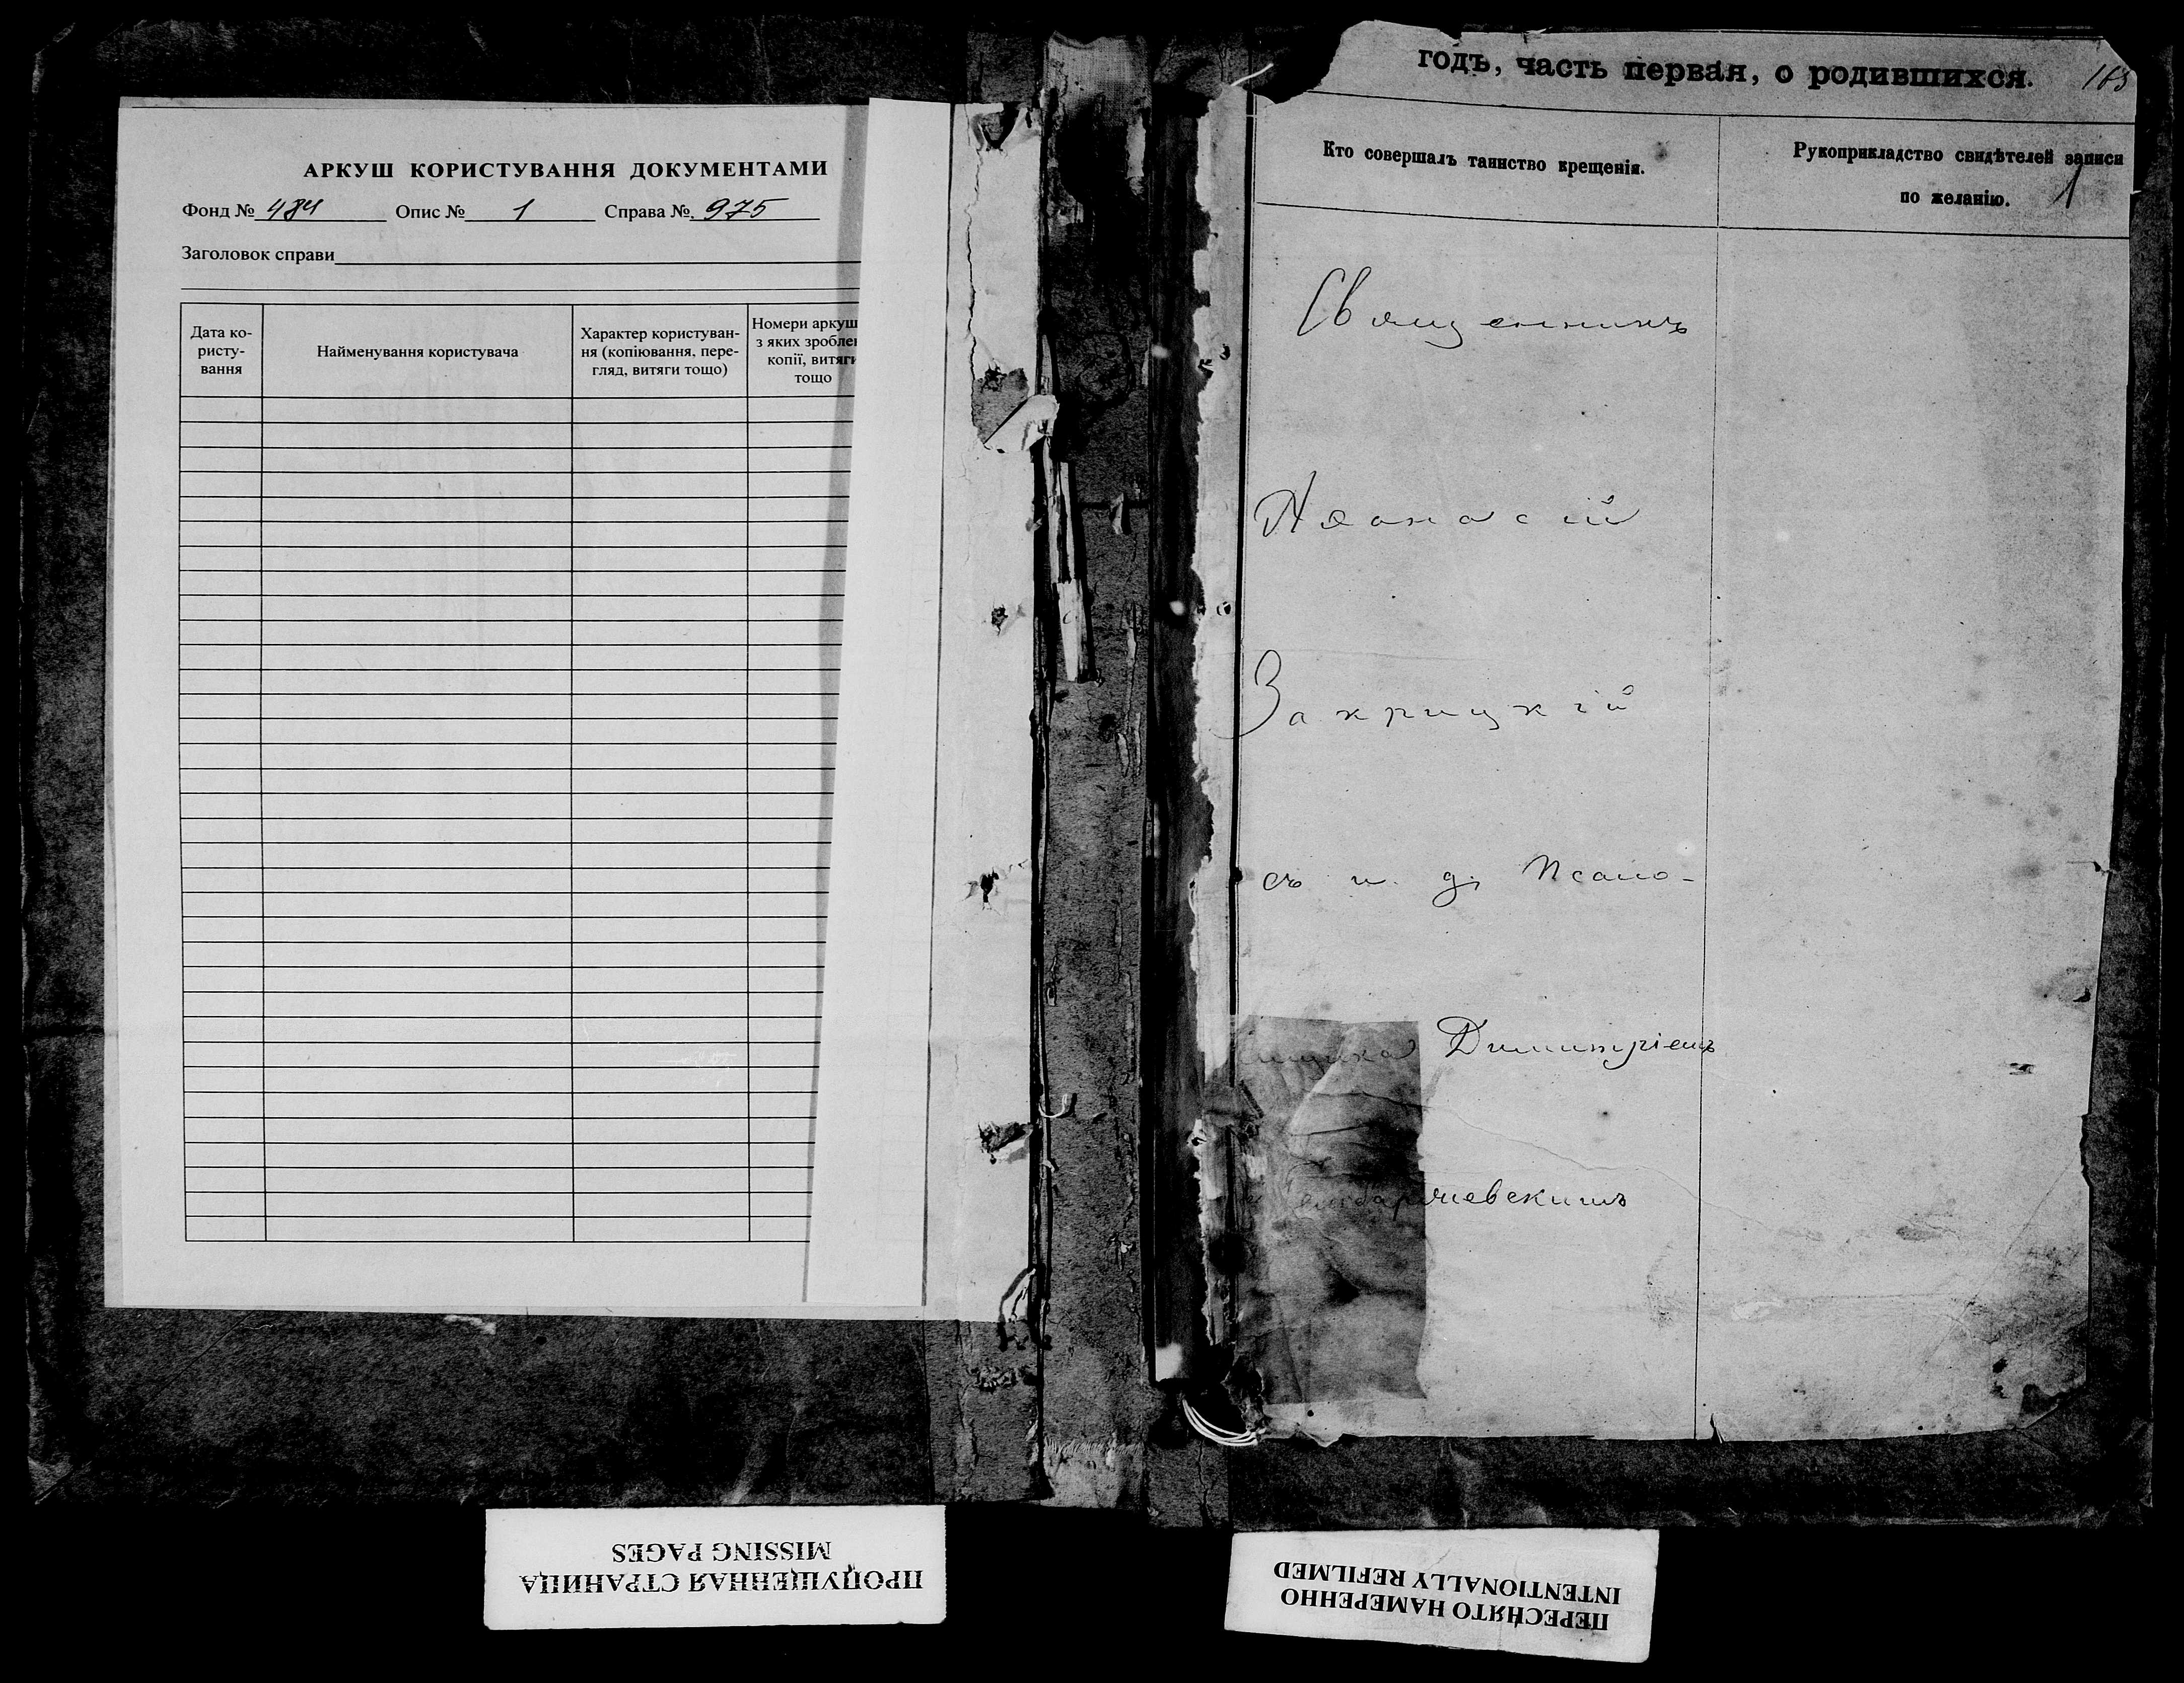 АРКУШ КОРИСТУВАННЯ ДОКУМЕНТАМИ
Фонд № 484 Опис № 1 Справа № 975
Заголовок справи
Дата ко-
ристу-
вання
Найменування користувача
Характер користуван-
ня (копіювання, пере-
гляд, витяги тощо)
Номери аркуш
з яких зробле
копії, витяги
тощо
годъ, часть первая, о родившихся.
Кто совершалъ таинство крещенія.
Рукоприкладство свидѣтелей записи
по желанію.
1
Священникъ
Аѳанасій
Закрицкій
съ и. д. Псало-
мщика Димитріемъ
ПРОПУЩЕННАЯ СТРАНИЦА
MISSING PAGES
ПЕРЕСНЯТО НАМЕРЕННО
INTENTIONALLY REFILMED